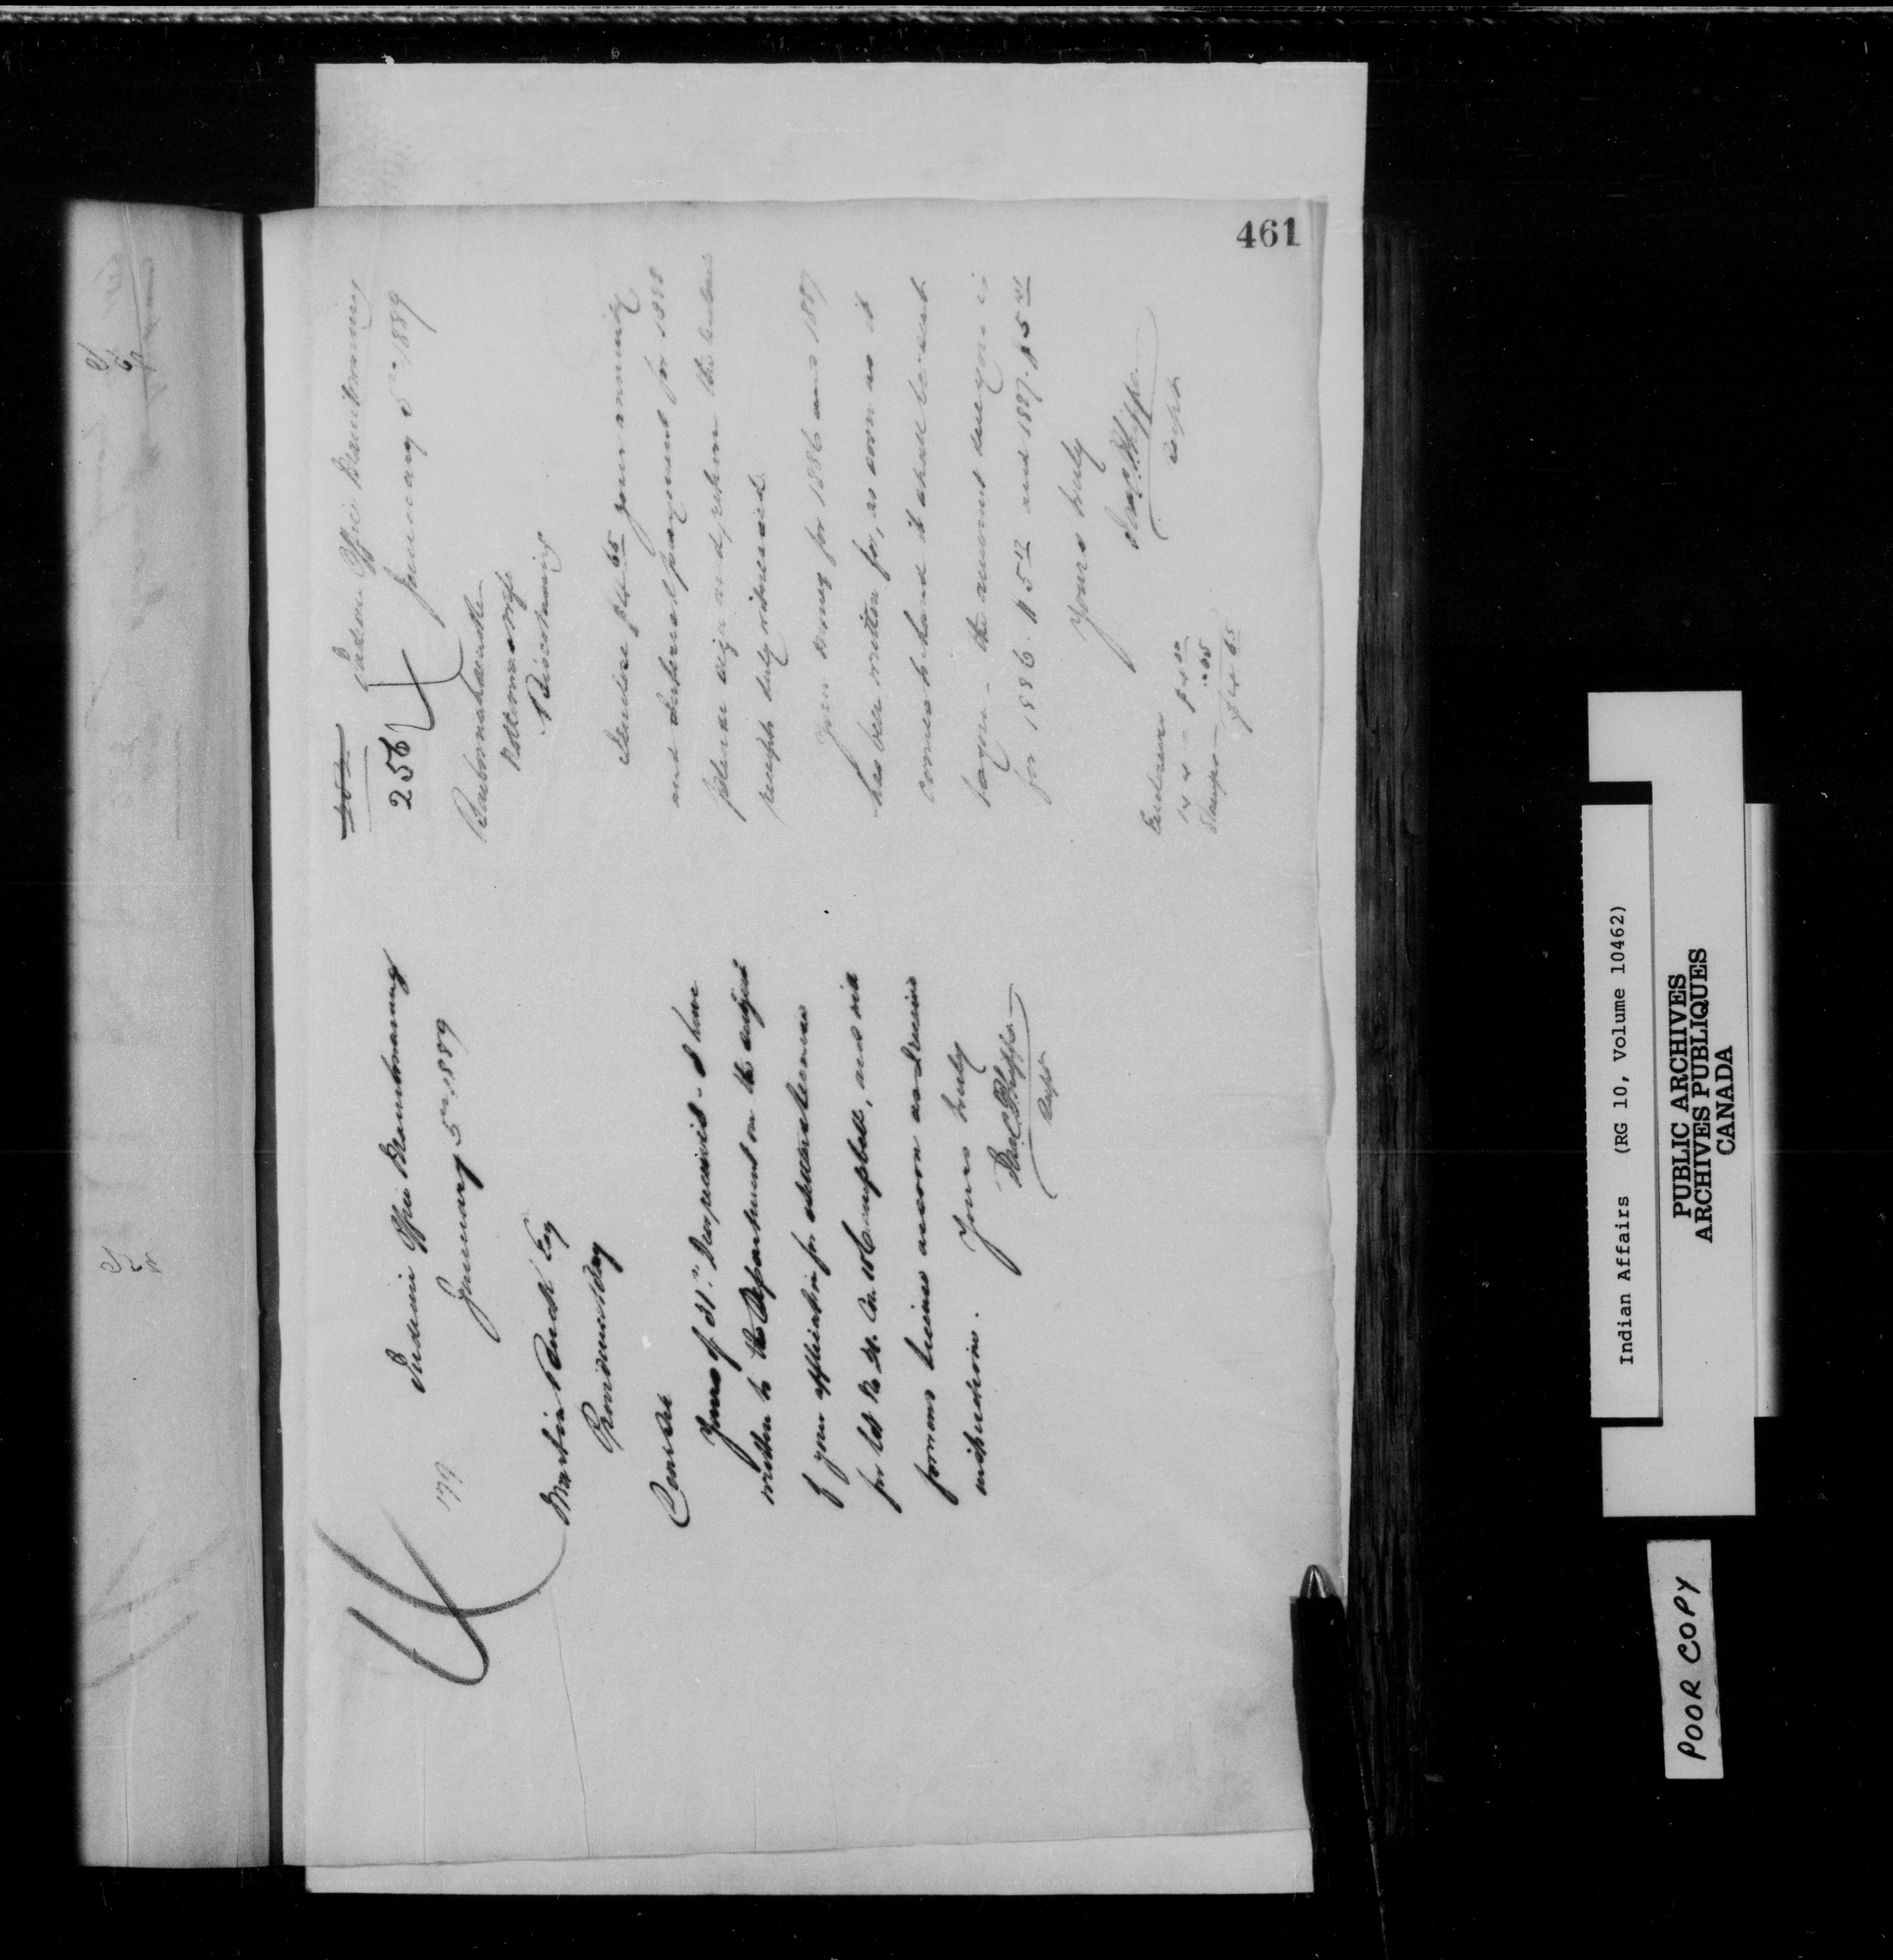 461
Indian Office Manitowaning
January 5th 1889
179
Martin Esq
Providence Bay
Yours of 31st Decr received - I have
written to the Department on the subject
of your application for
for Lot No 24. Con. 15 Campbell, and will
forward license as soon as I receive
instructions.
Yours truly
Jas C. Phipps
Supt
Indian Office Manitowaning
January 5th 1889
256
Enclose $4 65 your annuity
and Interest payment for 1888
please sign and return the enclosed
receipts duly witnessed.
Your money for 1886 and 1887
has been written for, as soon as it
comes to hand it shall be sent
to you - the amount due you is
for 1886 . $5 and 1887 . $5
Yours truly
Jas C. Phipps
Supt
Enclosure
Stamps - .65
$4 65
Indian Affairs (RG 10, Volume 10462)
PUBLIC ARCHIVES
ARCHIVES PUBLIQUES
CANADA
POOR COPY